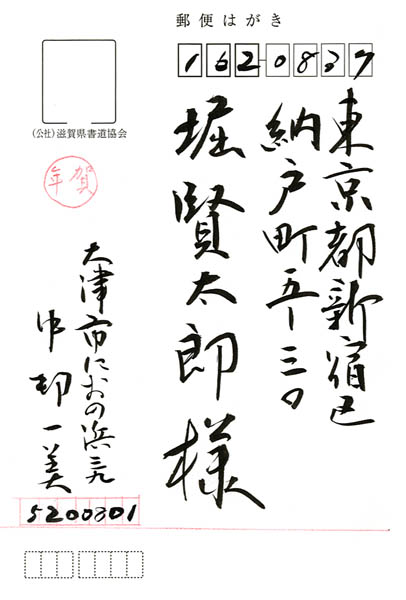 郵便はがき
162-0837
東京都新宿区
納戸町五ー三〇
堀賢太郎様
(公社)滋賀県書道協会
年賀
大津市におの浜三ノ九
中部一美
5200801